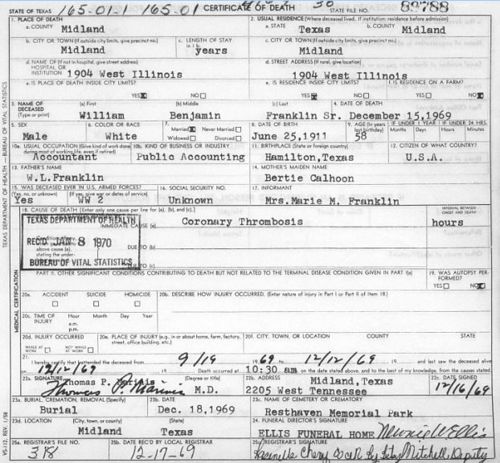 STATE OF TEXAS 165-01-1 165-01 CERTIFICATE OF DEATH 30 STATE FILE NO. 89788
1. PLACE OF DEATH 2. USUAL RESIDENCE (Where deceased lived. If institution: residence before admission)
a. COUNTY Midland a. STATE Texas b. COUNTY Midland
b. CITY OR TOWN (If outside city limits, give precinct no.) Midland c. LENGTH OF STAY years c. CITY OR TOWN (If outside city limits, give precinct no.) Midland
d. NAME OF (If not in hospital, give street address) HOSPITAL OR INSTITUTION 1904 West Illinois d. STREET ADDRESS (If rural, give location) 1904 West Illinois
e. IS PLACE OF DEATH INSIDE CITY LIMITS? YES NO e. IS RESIDENCE INSIDE CITY LIMITS? YES NO f. IS RESIDENCE ON A FARM? YES NO
3. NAME OF DECEASED (Type or print) (a) First William (b) Middle Benjamin (c) Last Franklin Sr. 4. DATE OF DEATH December 15,1969
5. SEX Male 6. COLOR OR RACE White 7. Married Never Married Widowed Divorced 8. DATE OF BIRTH June 25,1911 9. AGE (In years last birthday) 58 IF UNDER 1 YEAR Months Days IF UNDER 24 HRS. Hours Minutes
10a. USUAL OCCUPATION (Give kind of work done during most of working life, even if retired) Accountant 10b. KIND OF BUSINESS OR INDUSTRY Public Accounting 11. BIRTHPLACE (State or foreign country) Hamilton,Texas 12. CITIZEN OF WHAT COUNTRY? U.S.A.
13. FATHER'S NAME W.L.Franklin 14. MOTHER'S MAIDEN NAME Bertie Calhoon
15. WAS DECEASED EVER IN U.S. ARMED FORCES? (Yes, no, or unknown) Yes (If yes, give war or dates of service) WW 2 16. SOCIAL SECURITY NO. Unknown 17. INFORMANT Mrs.Marie M. Franklin
18. CAUSE OF DEATH [Enter only one cause per line for (a), (b), and (c).] INTERVAL BETWEEN ONSET AND DEATH
TEXAS DEPARTMENT OF HEALTH CAUSE (a) Coronary Thrombosis hours
REC'D JAN 8 1970 DUE TO (b)
BUREAU OF VITAL STATISTICS DUE TO (c)
PART II. OTHER SIGNIFICANT CONDITIONS CONTRIBUTING TO DEATH BUT NOT RELATED TO THE TERMINAL DISEASE CONDITION GIVEN IN PART I(a) 19. WAS AUTOPSY PERFORMED? YES NO
20a. ACCIDENT SUICIDE HOMICIDE 20b. DESCRIBE HOW INJURY OCCURRED. (Enter nature of injury in Part I or Part II of Item 18.)
20c. TIME OF INJURY Hour a.m. p.m. Month Day Year
20d. INJURY OCCURRED WHILE AT WORK NOT WHILE AT WORK 20e. PLACE OF INJURY (e.g., in or about home, farm, factory, street, office building, etc.) 20f. CITY, TOWN, OR LOCATION COUNTY STATE
21. I hereby certify that I attended the deceased from 9/19 1969 to 12/12/69 19 and last saw the deceased alive
12/12/69 19 Death occurred at 10:30 am on the date stated above, and to the best of my knowledge, from the causes stated.
22a. SIGNATURE (Degree or title) M.D. 22b. ADDRESS Midland,Texas 2205 West Tennessee 22c. DATE SIGNED 12/16/69
23a. BURIAL, CREMATION, REMOVAL (Specify) Burial 23b. DATE Dec. 18,1969 23c. NAME OF CEMETERY OR CREMATORY Resthaven Memorial Park
23d. LOCATION (City, town, or county) (State) Midland Texas 24. FUNERAL DIRECTOR'S SIGNATURE ELLIS FUNERAL HOME
25a. REGISTRAR'S FILE NO. 318 25b. DATE REC'D BY LOCAL REGISTRAR 12-17-69
TEXAS DEPARTMENT OF HEALTH — BUREAU OF VITAL STATISTICS
MEDICAL CERTIFICATION
VS-112, REV. 1/58